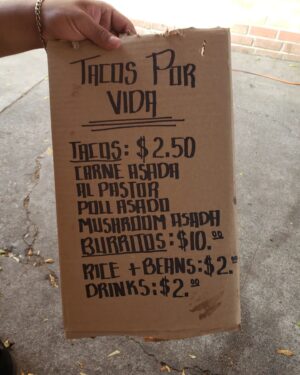 TACOS POR
VIDA
TACOS: $2.50
CARNE ASADA
AL PASTOR
POLL ASADO
MUSHROOM ASADA
BURRITOS: $10.00
RICE + BEANS: $2.00
DRINKS: $2.00